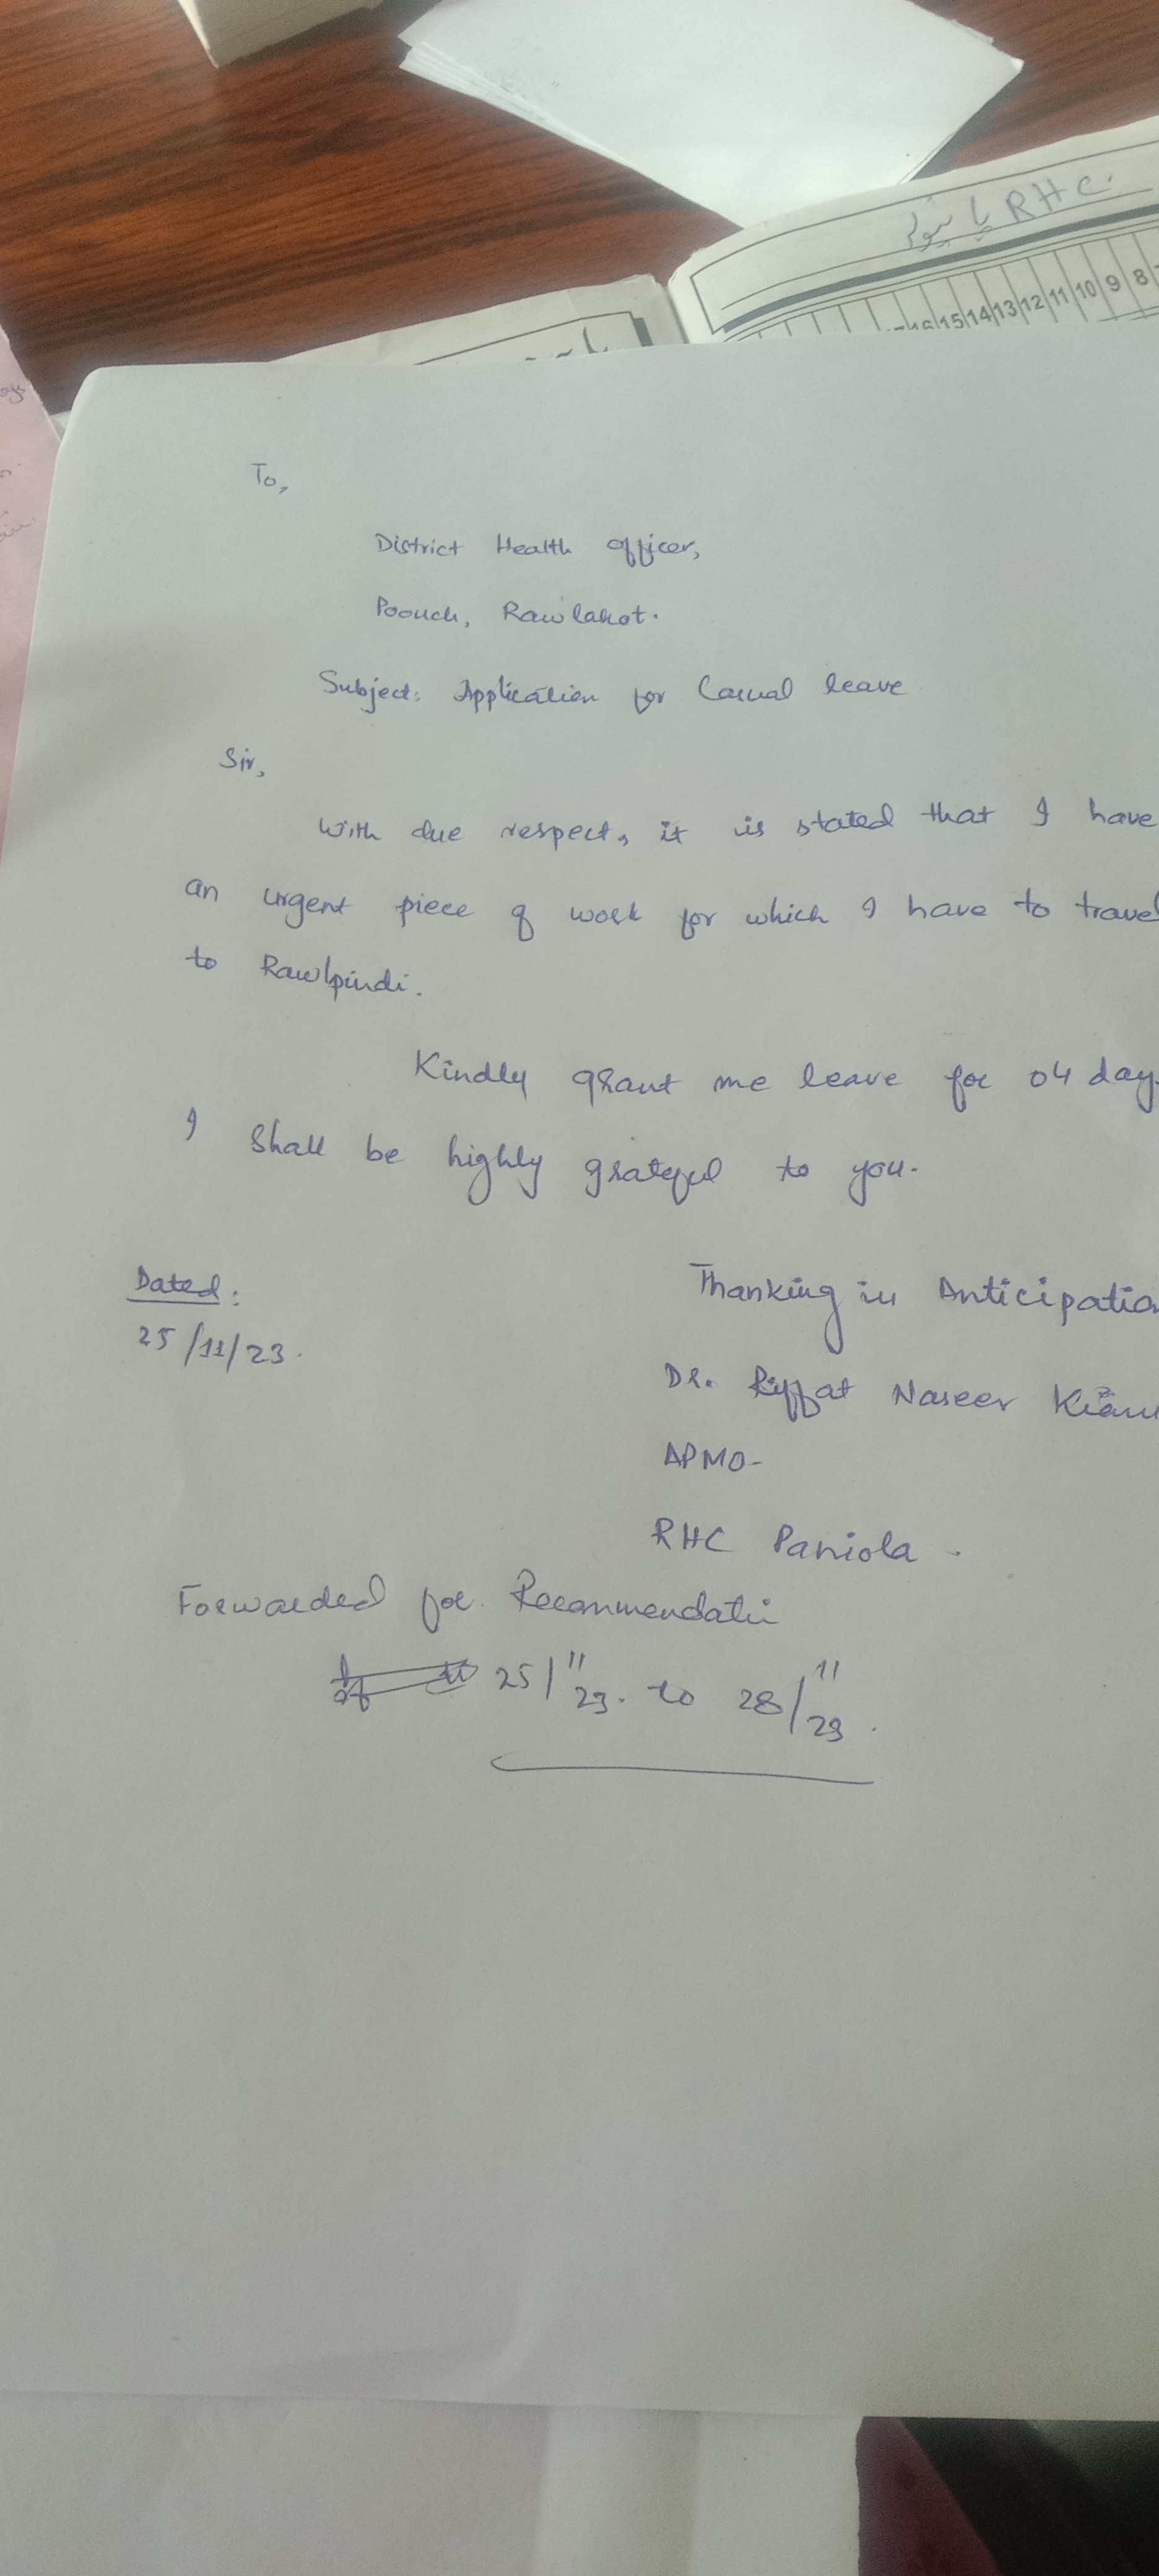 RHC پانیولہ
16 15 14 13 12 11 10 9 8
To,
District Health Officer,
Poouch, Rawlakot.
Subject: Application for Casual leave
Sir,
With due respect, it is stated that I have
an urgent piece of work for which I have to travel
to Rawlpindi.
Kindly grant me leave for 04 day
I shall be highly grateful to you.
Thanking in Anticipatio
Dated:
25/11/23.
Dr. Riffat Naseer
APMO-
RHC Paniola.
Forwarded for Recommendati
25/11/23. to 28/11/23.